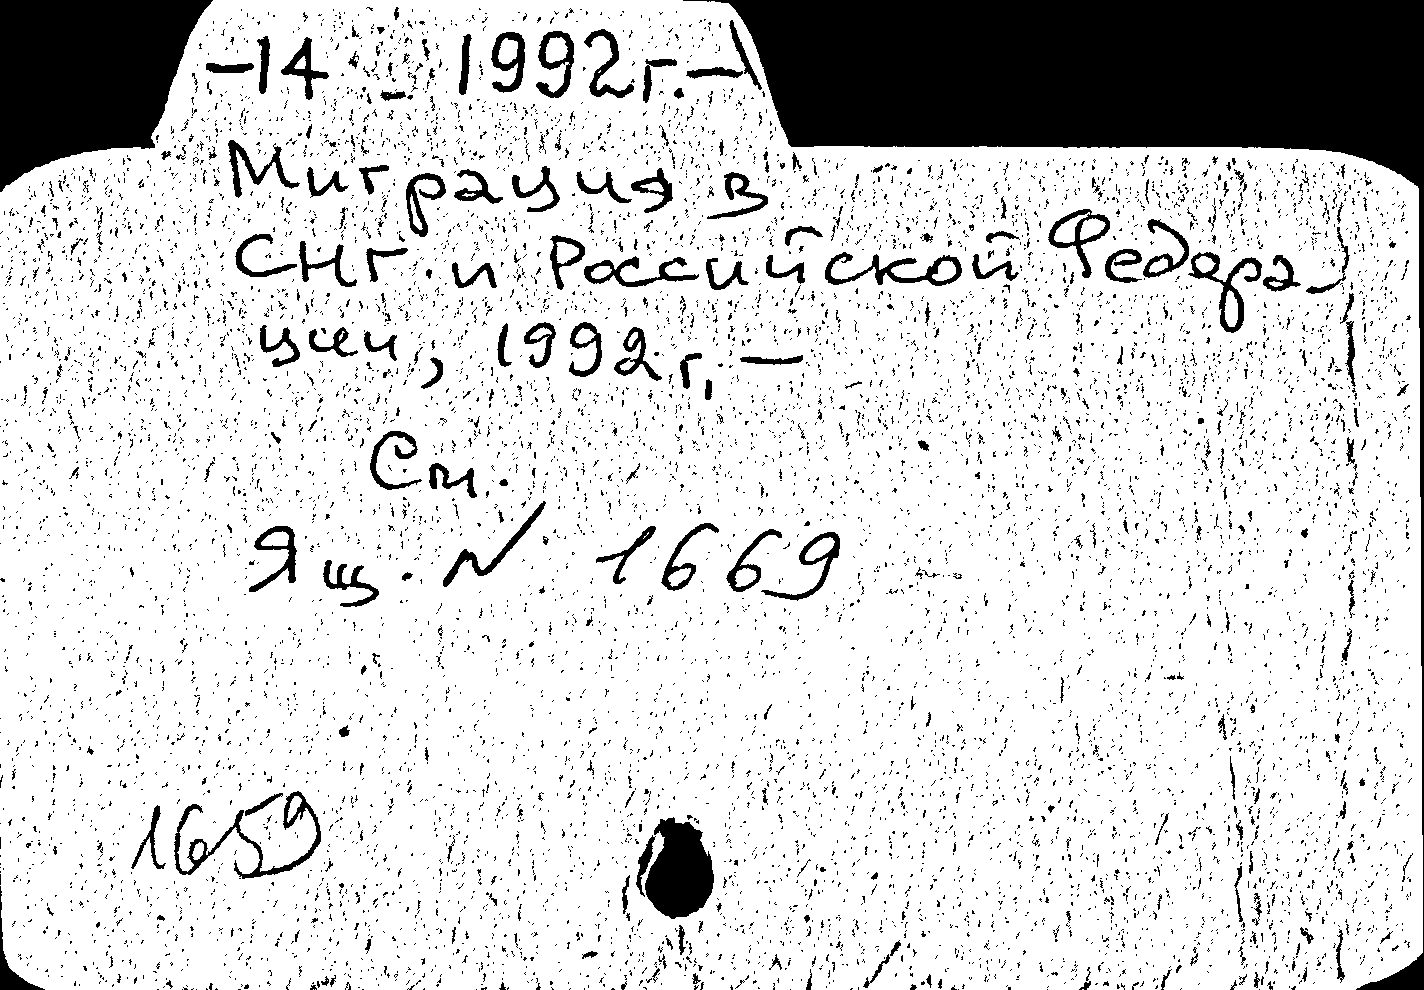 -14 - 1992г. -
Миграция в
СНГ и Российской Федера-
ции, 1992 г, -
См.
Ящ. N 1669
1659